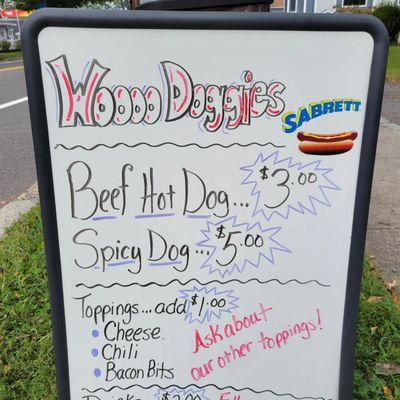 Woooo Doggies
SABRETT
Beef Hot Dog... $3.00
Spicy Dog... $5.00
Toppings... add $1.00
• Cheese
• Chili
• Bacon Bits
Ask about
our other toppings!